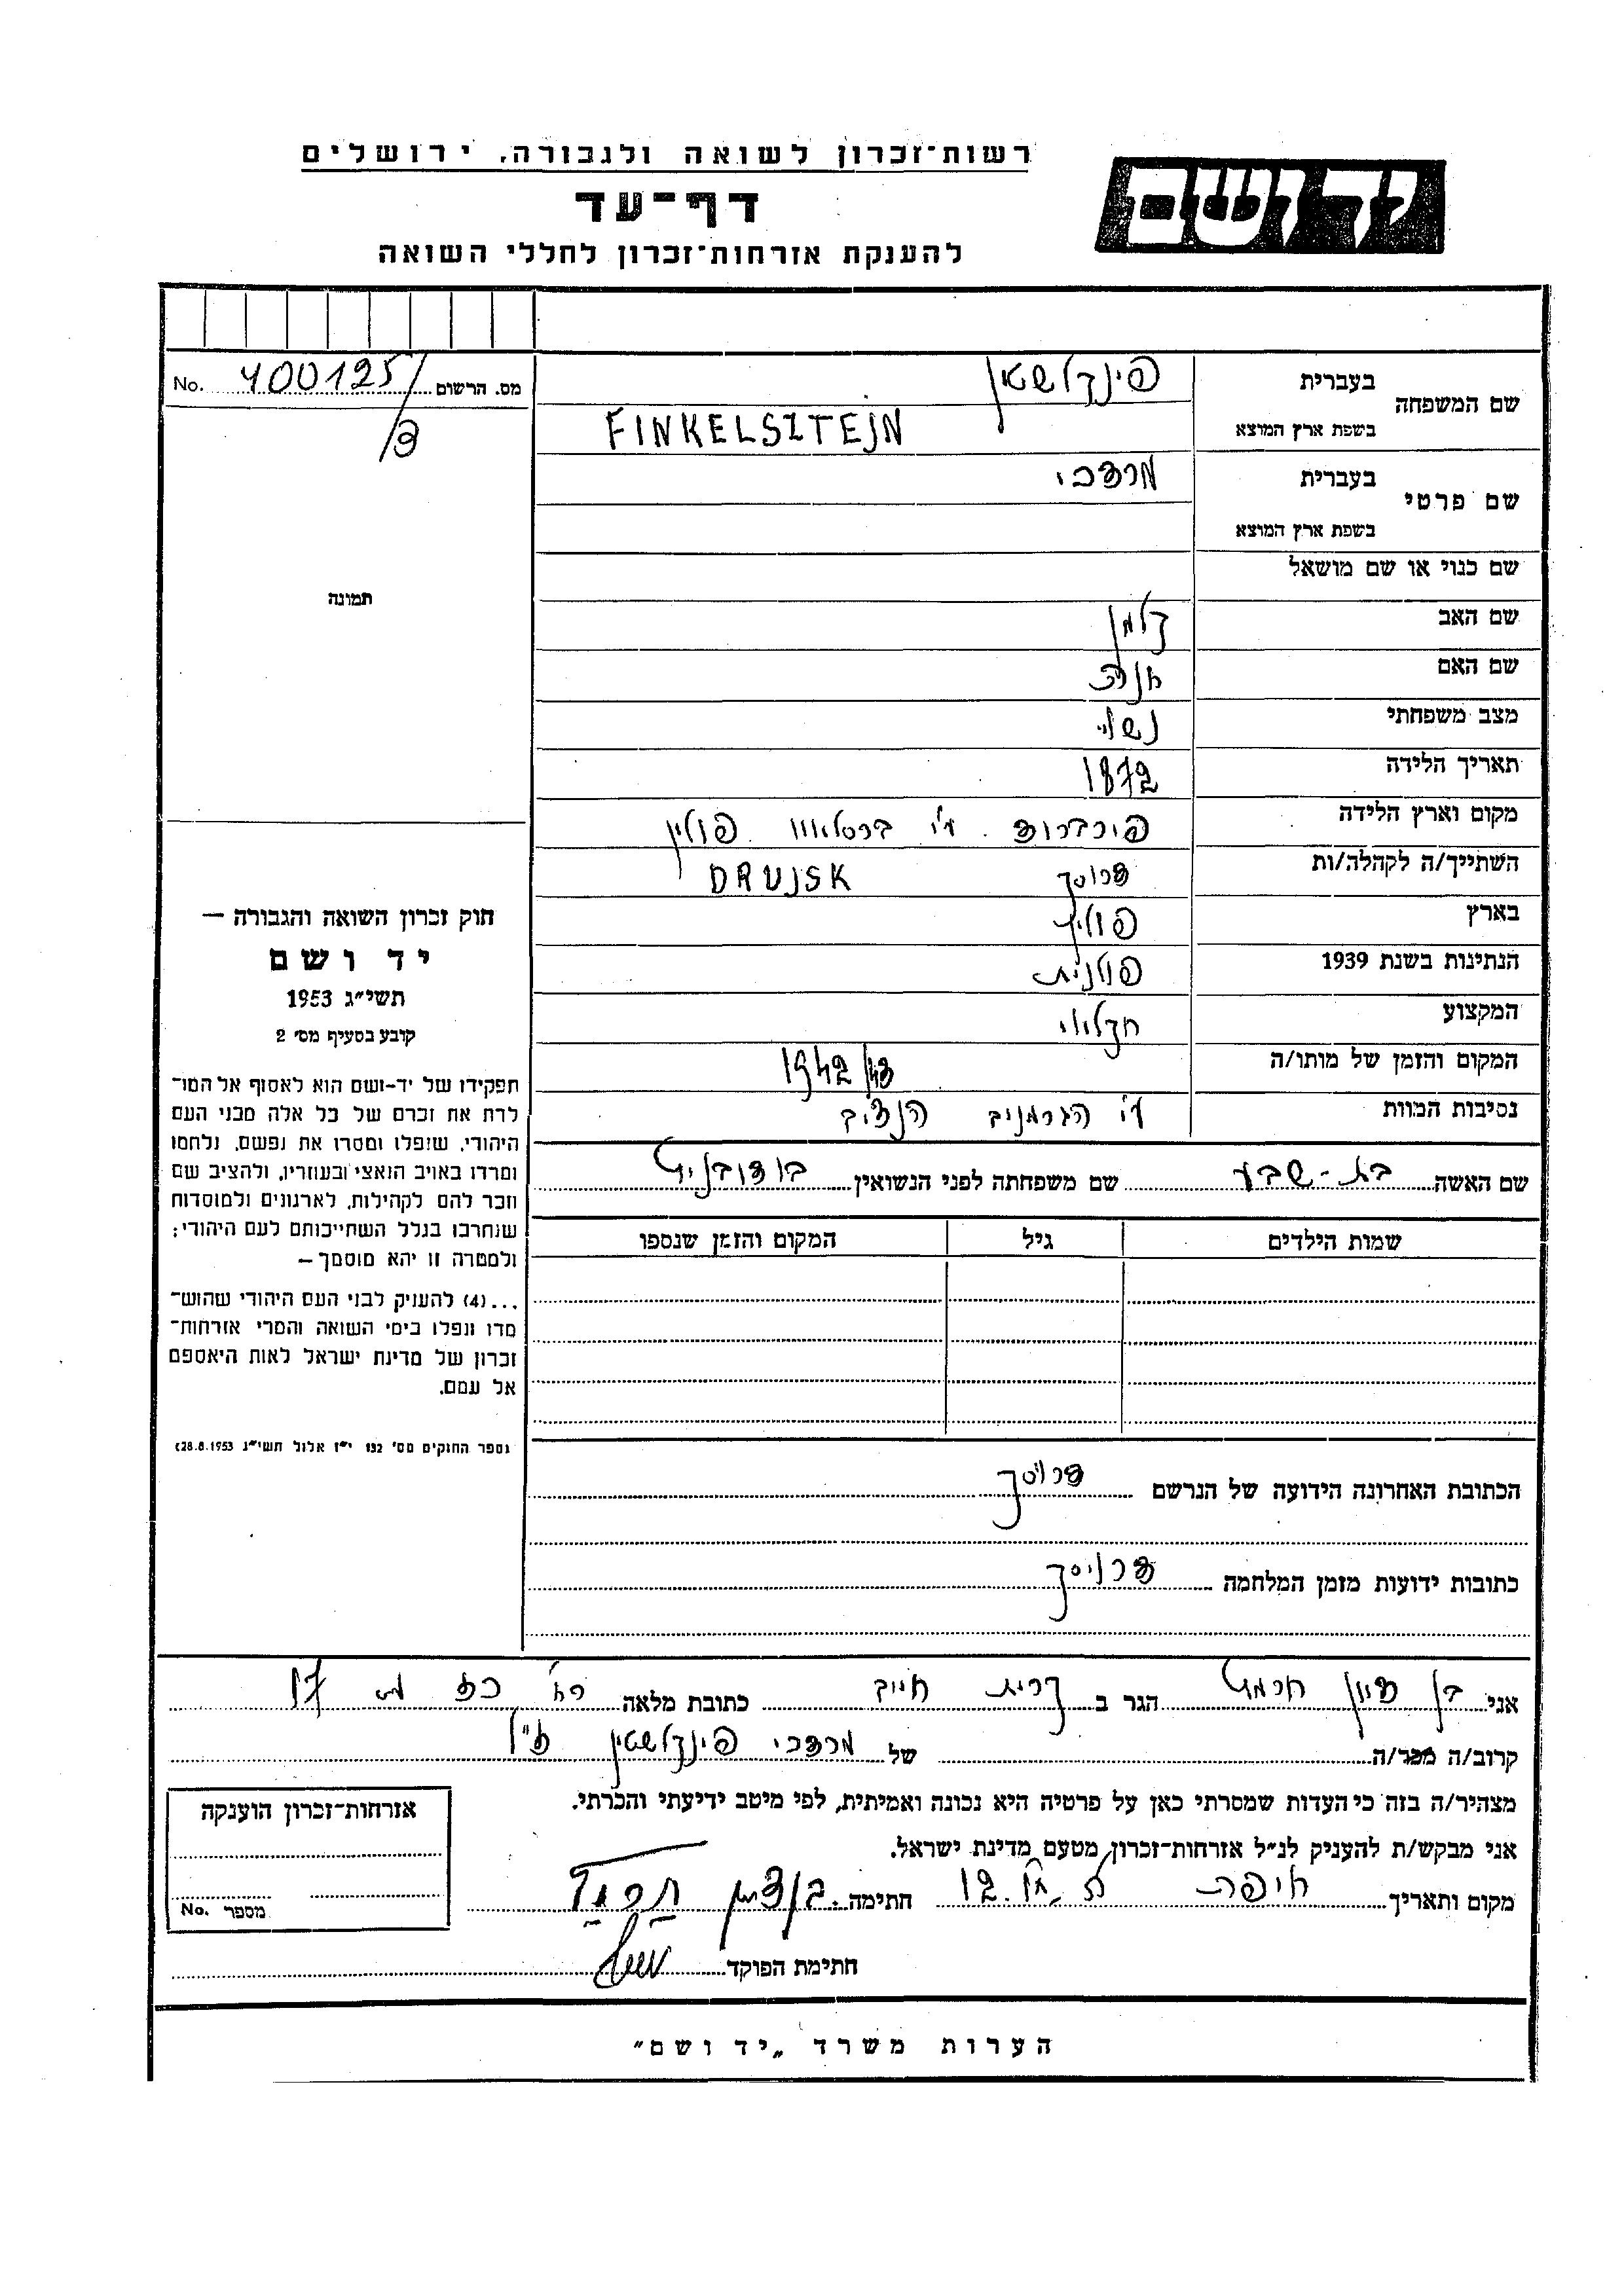 רשות־זכרון לשואה ולגבורה, ירושלים
יד ושם
דף־עד
להענקת אזרחות־זכרון לחללי השואה
No. 400125/ מס. הרשום
/3
תמונה
שם המשפחה
בעברית פינקלשטין
בשפת ארץ המוצא FINKELSZTEJN
שם פרטי
בעברית מרדכי
בשפת ארץ המוצא
שם כנוי או שם מושאל
שם האב קלמן
שם האם
מצב משפחתי נשוי
תאריך הלידה 1872
מקום וארץ הלידה ע"י ברסלאוו פולין
השתייך/ה לקהלה/ות דרוסק DRUJSK
בארץ פולין
הנתינות בשנת 1939 פולנית
המקצוע חקלאי
המקום והזמן של מותו/ה 1942/43
נסיבות המוות ע"י הגרמנים
שם האשה בת-שבע שם משפחתה לפני הנשואין
שמות הילדים גיל המקום והזמן שנספו
הכתובת האחרונה הידועה של הנרשם דרויסק
כתובות ידועות מזמן המלחמה דרויסק
חוק זכרון השואה והגבורה —
יד ושם
תשי״ג 1953
קובע בסעיף מס׳ 2
תפקידו של יד-ושם הוא לאסוף אל המו־
לדת את זכרם של כל אלה מבני העם
היהודי, שנפלו ומסרו את נפשם, נלחמו
ומרדו באויב הנאצי ובעוזריו, ולהציב שם
וזכר להם לקהילות, לארגונים ולמוסדות
שנחרבו בגלל השתייכותם לעם היהודי;
ולמטרה זו יהא מוסמך —
...(4) להעניק לבני העם היהודי שהוש־
מדו ונפלו בימי השואה והמרי אזרחות־
זכרון של מדינת ישראל לאות היאספם
אל עמם.
(ספר החוקים מס׳ 132 י״ז אלול תשי״ג 28.8.1953)
אני בן ציון חרמץ הגר ב קרית חיים כתובת מלאה רח' כד מס 17
קרוב/ה מכר/ה של מרדכי פינקלשטין ז"ל
מצהיר/ה בזה כי העדות שמסרתי כאן על פרטיה היא נכונה ואמיתית, לפי מיטב ידיעתי והכרתי.
אני מבקש/ת להעניק לנ״ל אזרחות־זכרון מטעם מדינת ישראל.
מקום ותאריך חיפה חתימה
חתימת הפוקד
אזרחות־זכרון הוענקה
מספר No.
הערות משרד „יד ושם״